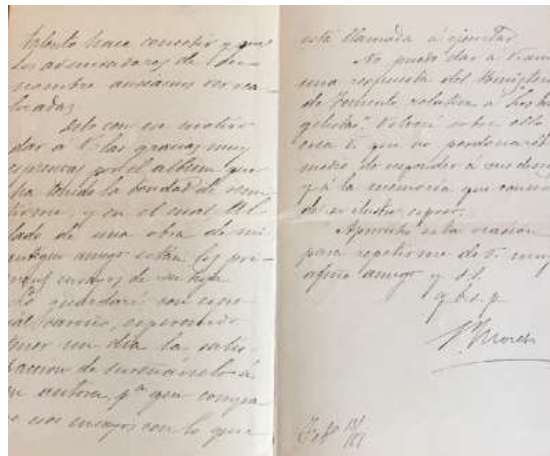 talento hace concebir y que
los admiradores de su
nombre ansiamos ver rea-
lizadas
Esto con su motivo
dar a V. las gracias muy
expresivas por el album que
ha tenido la bondad de
y en el cual al
lado de una obra de mi
antiguo amigo están los pri-
meros ensayos de su hija
Lo guardaré con
cariño, esperando
tener un día la satis-
faccion de enseñárselo á
su autora, pª que compa-
re esos ensayos con lo que
está llamada á ejecutar
No puedo dar a V. aun
una respuesta del
de Fomento relativa a "Los
Volveré sobre ello
crea V. que no perdonaré
medio de responder á sus
y á la memoria que
de su ilustre esposo.
Aprovecho esta ocasión
para repetirme de V. muy
amigo y s.s.
q b s p